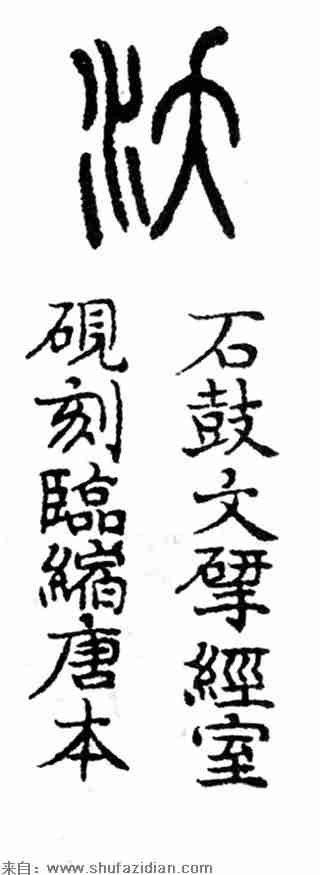 石鼓文揅經室
硯刻臨縮唐本
来自：www.shufazidian.com